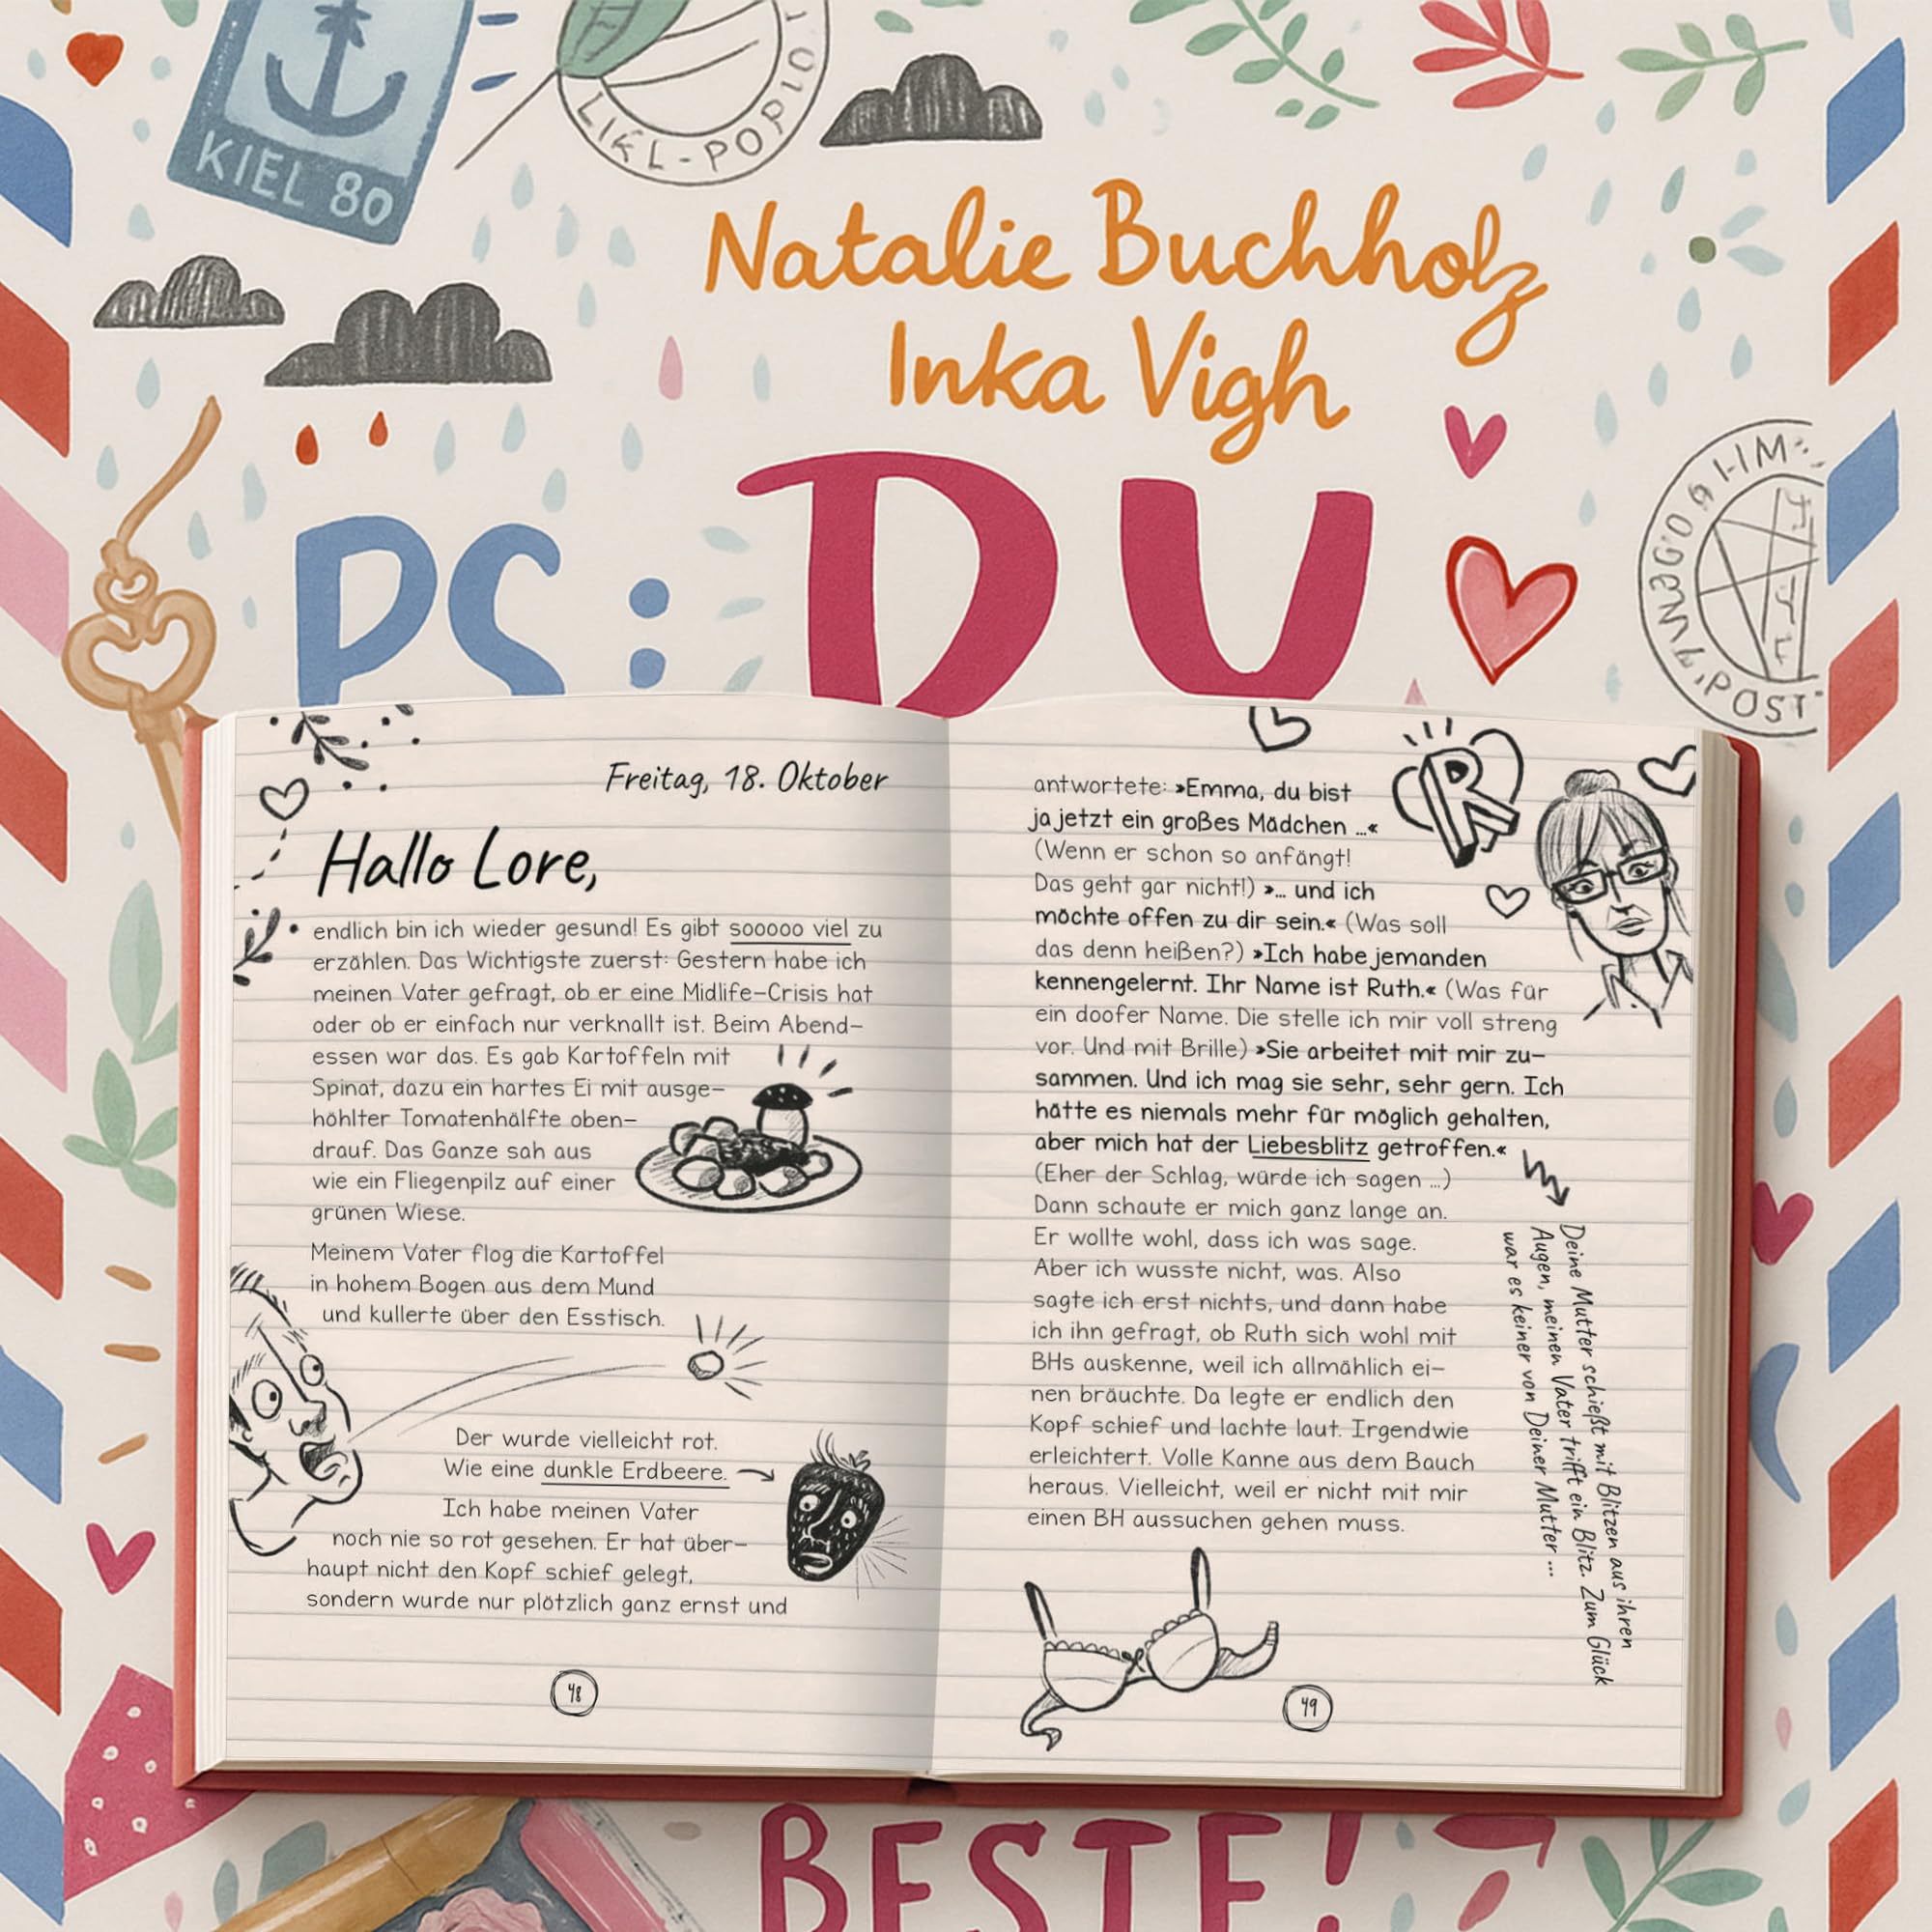 KIEL 80
LIEL-POPIO
Natalie Buchholz
Inka Vigh
PS: DU
POST
Freitag, 18. Oktober
Hallo Lore,
endlich bin ich wieder gesund! Es gibt sooooo viel zu
erzählen. Das Wichtigste zuerst: Gestern habe ich
meinen Vater gefragt, ob er eine Midlife-Crisis hat
oder ob er einfach nur verknallt ist. Beim Abend-
essen war das. Es gab Kartoffeln mit
Spinat, dazu ein hartes Ei mit ausge-
höhlter Tomatenhälfte oben-
drauf. Das Ganze sah aus
wie ein Fliegenpilz auf einer
grünen Wiese.
Meinem Vater flog die Kartoffel
in hohem Bogen aus dem Mund
und kullerte über den Esstisch.
Der wurde vielleicht rot.
Wie eine dunkle Erdbeere.
Ich habe meinen Vater
noch nie so rot gesehen. Er hat über-
haupt nicht den Kopf schief gelegt,
sondern wurde nur plötzlich ganz ernst und
48
R
antwortete: »Emma, du bist
ja jetzt ein großes Mädchen ...«
(Wenn er schon so anfängt!
Das geht gar nicht!) »... und ich
möchte offen zu dir sein.« (Was soll
das denn heißen?) »Ich habe jemanden
kennengelernt. Ihr Name ist Ruth.« (Was für
ein doofer Name. Die stelle ich mir voll streng
vor. Und mit Brille) »Sie arbeitet mit mir zu-
sammen. Und ich mag sie sehr, sehr gern. Ich
hätte es niemals mehr für möglich gehalten,
aber mich hat der Liebesblitz getroffen.«
(Eher der Schlag, würde ich sagen ...)
Dann schaute er mich ganz lange an.
Er wollte wohl, dass ich was sage.
Aber ich wusste nicht, was. Also
sagte ich erst nichts, und dann habe
ich ihn gefragt, ob Ruth sich wohl mit
BHs auskenne, weil ich allmählich ei-
nen bräuchte. Da legte er endlich den
Kopf schief und lachte laut. Irgendwie
erleichtert. Volle Kanne aus dem Bauch
heraus. Vielleicht, weil er nicht mit mir
einen BH aussuchen gehen muss.
Deine Mutter schießt mit Blitzen aus ihren
Augen, meinen Vater trifft ein Blitz. Zum Glück
war es keiner von Deiner Mutter ...
49
BESTE!